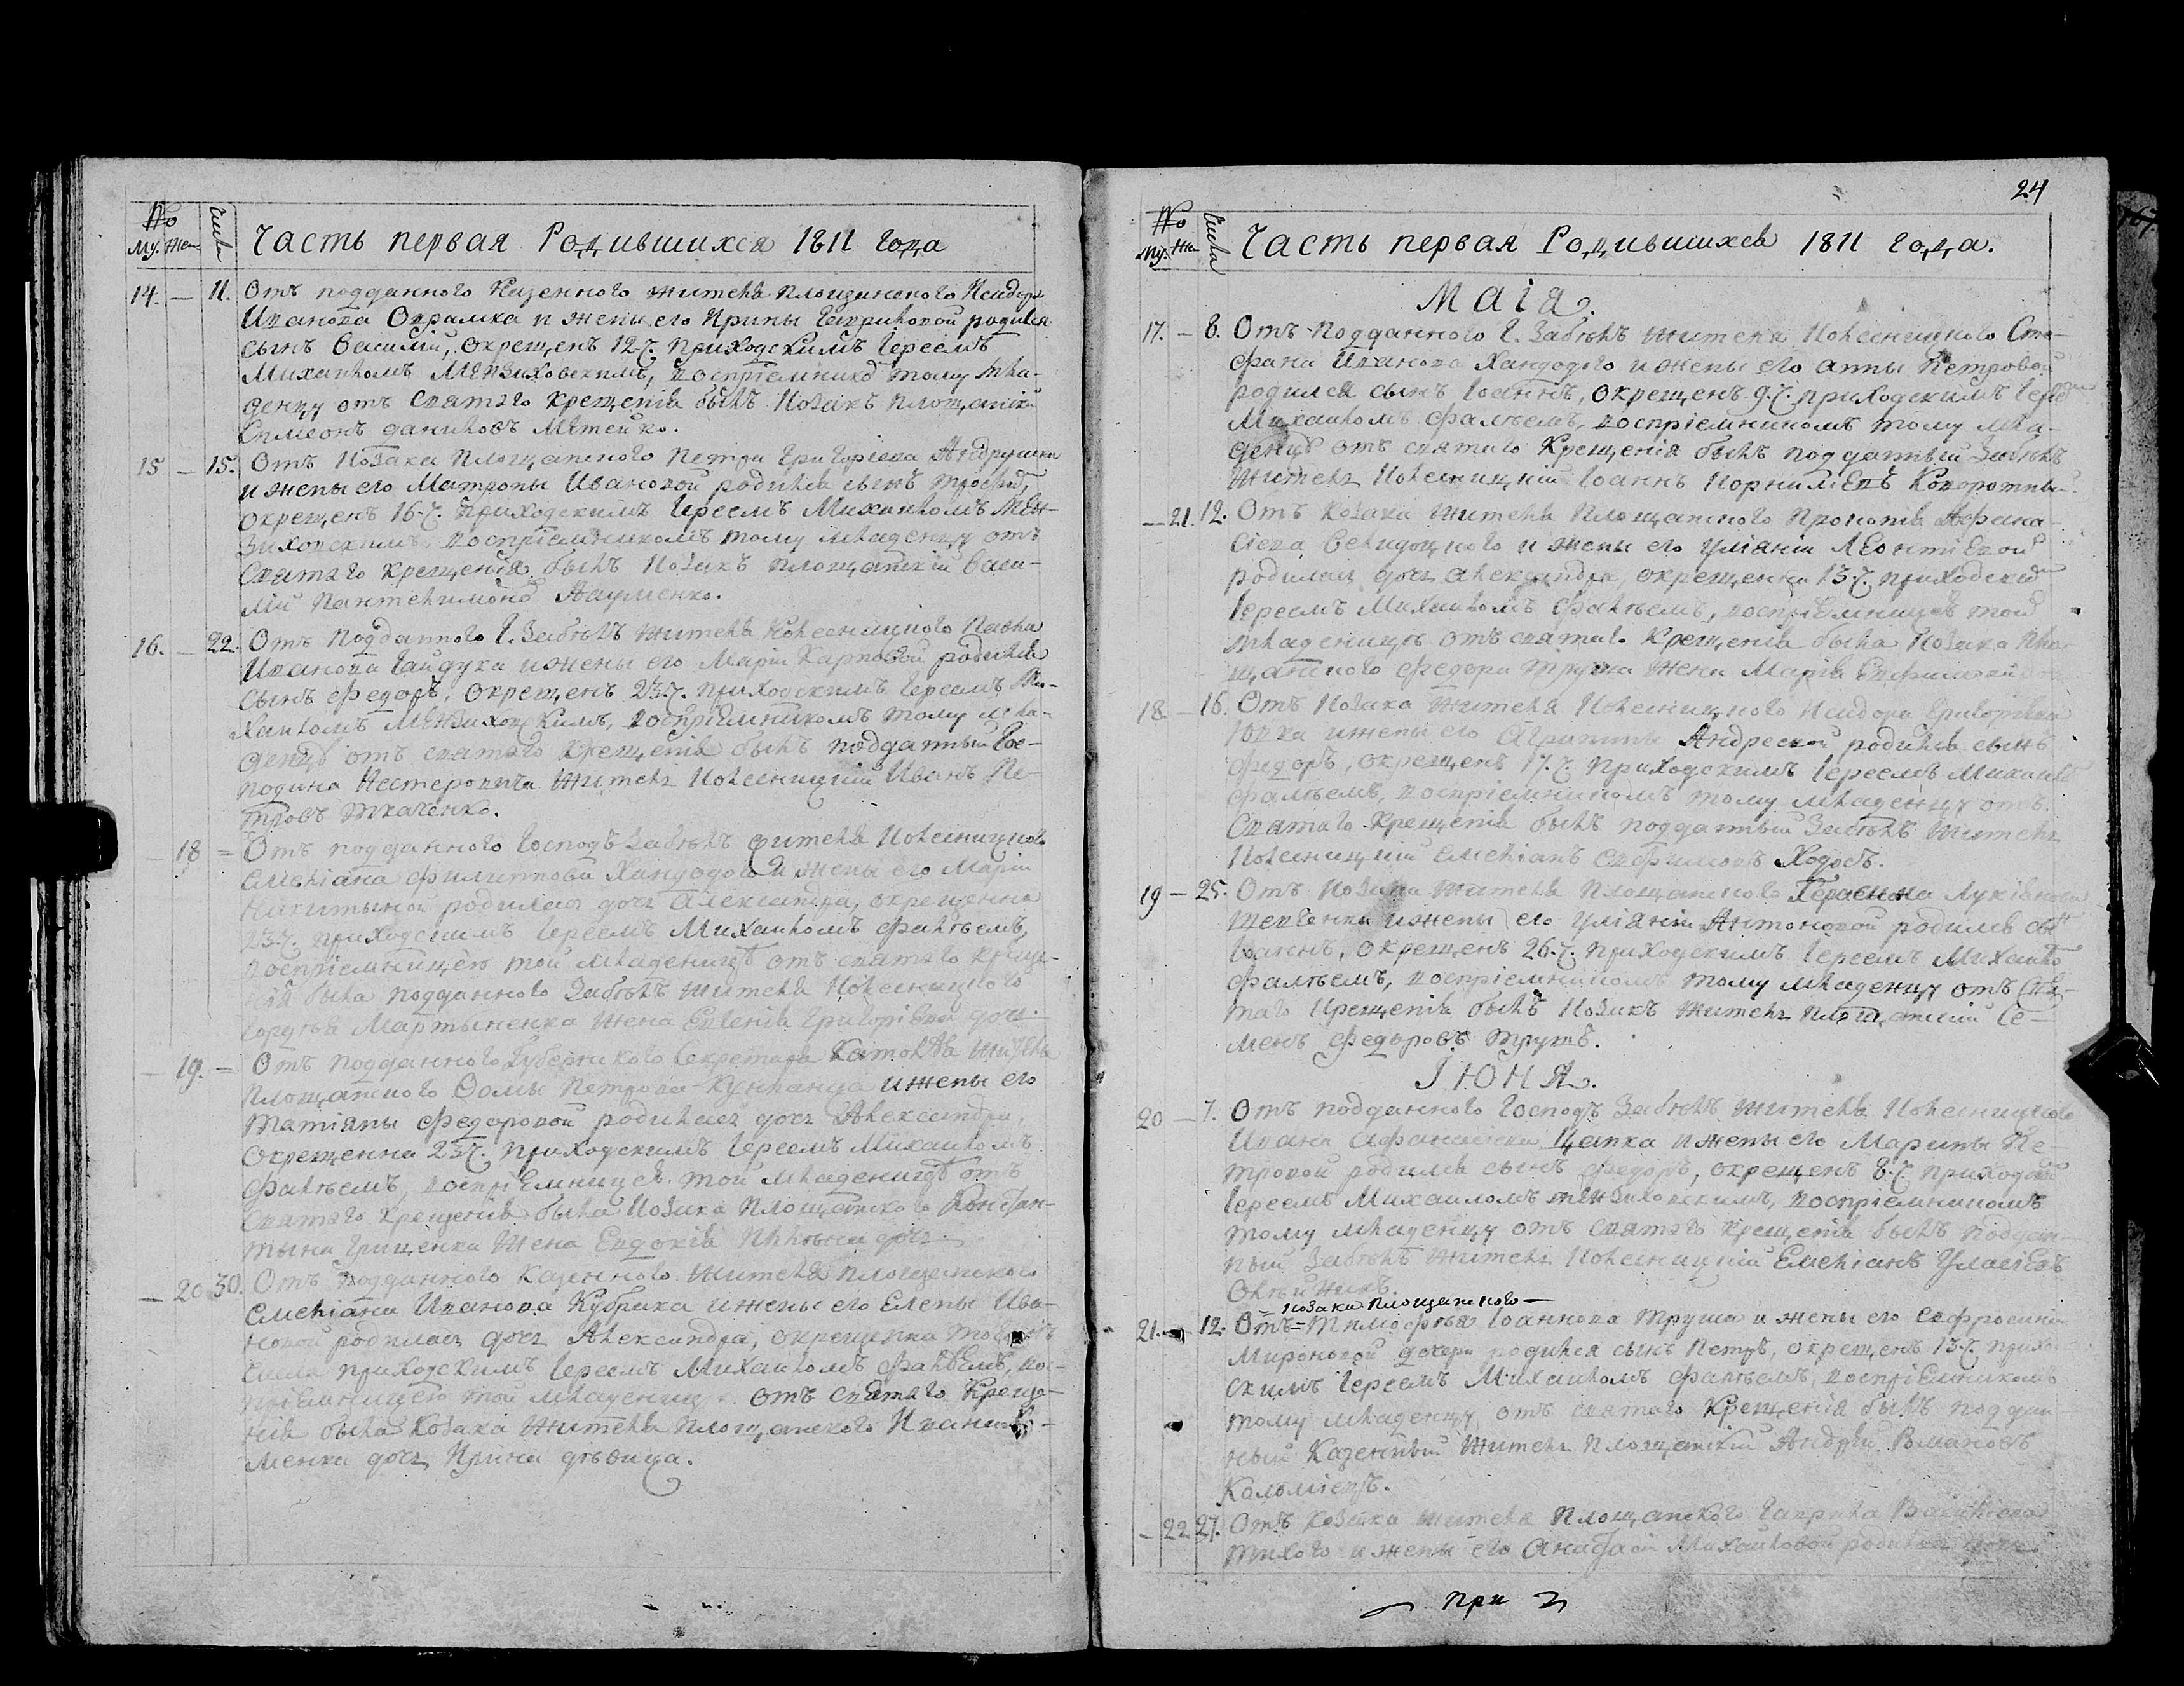 №
Му. Жен
Числа
Часть первая Родившихся 1811 года
14. — 11. Отъ подданного Казенного жителя площанского Исидора
Иванова Овраmка и жены его Ирины Гавриловой родился
сынъ Василій, окрещенъ 12.г. приходскимъ Іереемъ
Михаиломъ Мензиховскимъ, воспріемникъ тому мла-
денцу отъ Святаго крещенія былъ Козакъ площанскій
Симеонъ даниловъ Метейко.
15 — 15. Отъ Козака Площанского Петра Григоріева Андрушка
и жены его Матроны Ивановой родился сынъ
окрещенъ 16.г. приходскимъ Іереемъ Михаиломъ Мен-
зиховскимъ, воспріемникомъ тому младенцу отъ
Святаго крещенія былъ Козакъ площанскій Васи-
лій Пантелимоновъ Науменко.
16. — 22. Отъ Подданного Г. Забѣлъ жителя Колесницкого Павла
Иванова Гайдука и жены его Маріи Карповой родился
сынъ Федоръ, окрещенъ 23.г. приходскимъ Іереемъ Ми-
хаиломъ Мензиховскимъ, воспріемникомъ тому мла-
денцу отъ святаго крещенія былъ подданный Гос-
подина Нестеровича житель Колесницкій Иванъ Пе-
тровъ Ткаченко.
— 18 = Отъ подданного Господъ Забѣлъ жителя Колесницкого
Емеліана Филиппова Хандодого и жены его Маріи
Никитиной родилась дочь Александра, окрещенна
23.г. приходскимъ Іереемъ Михаиломъ Фалѣемъ,
воспріемницею той младеницѣ отъ святаго креще-
нія была подданного Забѣлъ жителя Колесницкого
Мартыненка жена Евгенія Григоріева дочь.
— 19. = Отъ подданного Губернского Секретаря жителя
площанского Фомы Петрова и жены его
Татіяны Федоровой родилась дочь Александра,
окрещенна 23.г. приходскимъ Іереемъ Михаиломъ
Фалѣемъ, воспріемницею той младеницѣ отъ
Святаго крещенія была Козака Площанского Констан-
тина Гриценка жена Евдокія дочь.
— 20 30. Отъ подданного казенного жителя площанского
Емеліана Иванова Кубрака и жены его Елены Ива-
новой родилась дочь Александра, окрещенна того жъ
числа приходскимъ Іереемъ Михаиломъ Фалѣемъ, вос-
пріемницею той младеницѣ отъ святаго Креще-
нія была Козака жителя площанского Ивана
менка дочь Ирина дѣвица.
24
№
Му. Же
Числа
Часть первая Родившихся 1811 года.
МАІЯ.
17. — 8. Отъ подданного Г. Забѣлъ жителя Колесницкого Сте-
фана Иванова Хандодого и жены его анны Петровой
родился сынъ Іоаннъ, окрещенъ 9.г. приходскимъ Іереемъ
Михаиломъ Фалѣемъ, воспріемникомъ тому мла-
денцу отъ святаго Крещенія былъ подданный Забѣлъ
житель Колесницкій Іоаннъ Корниліевъ
— 21. 12. Отъ Козака жителя Площанского Прокопія Афана-
сіева и жены его Уліяніи Леонтіевой
родилась дочь александра, окрещенна 13.г. приходскимъ
Іереемъ Михаиломъ Фалѣемъ, воспріемницею той
младеницѣ отъ святаго Крещенія была Козака Пло-
щанского Федора Труша жена Марія
18 — 16. Отъ Козака жителя Колесницкого Исидора Григоріева
и жены его Агрипины Андреевой родился сынъ
Федоръ, окрещенъ 17.г. приходскимъ Іереемъ Михаил
Фалѣемъ, воспріемникомъ тому младенцу отъ
Святаго Крещенія былъ подданный Забѣлъ житель
Колесницкій Емеліанъ Евфимовъ Ходосъ.
19 — 25. Отъ Козака жителя Площанского Герасима Лукіянова
Шевченка и жены его Уліяніи Антоновой родился сынъ
Іоаннъ, окрещенъ 26.г. приходскимъ Іереемъ Михаило
Фалѣемъ, воспріемникомъ тому младенцу отъ Свя-
таго Крещенія былъ Козакъ житель площанскій Се-
менъ Федоровъ Трушъ.
ІЮНЯ.
20 — 7. Отъ подданного Господъ Забѣлъ жителя Колесницкого
Ивана Афанасіева Цапка и жены его Марины Пе-
тровой родился сынъ Федоръ, окрещенъ 8.г. приходскимъ
Іереемъ Михаиломъ Мензиховскимъ, воспріемникомъ
тому младенцу отъ Святаго крещенія былъ поддан-
ный Забѣлъ житель Колесницкій Емеліанъ Уласіевъ
Олѣйникъ.
козака площанского —
21. — 12. Отъ = Тимофѣя Іоаннова Труша и жены его Евфросиніи
Мироновой дочери родился сынъ Петръ, окрещенъ 13.г. прихо
скимъ Іереемъ Михаиломъ Фалѣемъ, воспріемникомъ
тому младенцу отъ святаго Крещенія былъ поддан
ный Казенный житель площанскій Андрѣй Романовъ
Коломіецъ.
— 22 27. Отъ Козака жителя Площанского Гаврила Василіева
Тихого и жены его Анастасіи Михайловой родилась дочь
При